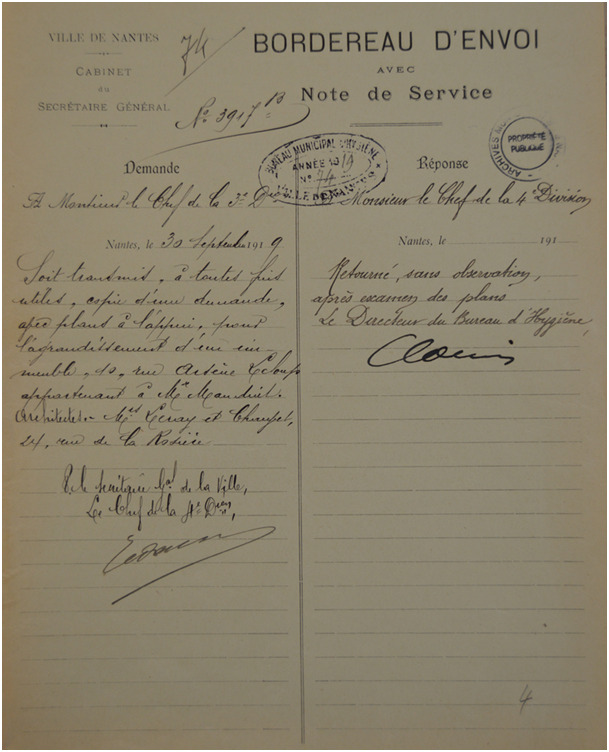 VILLE DE NANTES
CABINET
du
SECRÉTAIRE GÉNÉRAL
74
No 3917 B
BORDEREAU D'ENVOI
AVEC
Note de Service
BUREAU MUNICIPAL D'HYGIÈNE
ANNÉE 1919
No 74
VILLE DE NANTES
ARCHIVES
PROPRIÉTÉ
PUBLIQUE
Demande
A Monsieur le Chef de la 3e Don
Nantes, le 30 Septembre 1919
Soit transmis, à toutes fins
utiles, copie d'une demande,
avec plans à l'appui, pour
l'agrandissement d'un im-
meuble, 10, rue Arsène Leloup
appartenant à Mr
Architectes Mrs Lenay et Chaupet,
24, rue de la Rosière
P. le Secrétaire Gal de la Ville,
Le Chef de la 4e Don,
Réponse
Monsieur le Chef de la 4e Division
Nantes, le 191
Retourné, sans observation,
après examen des plans
Le Directeur du Bureau d'Hygiène,
4